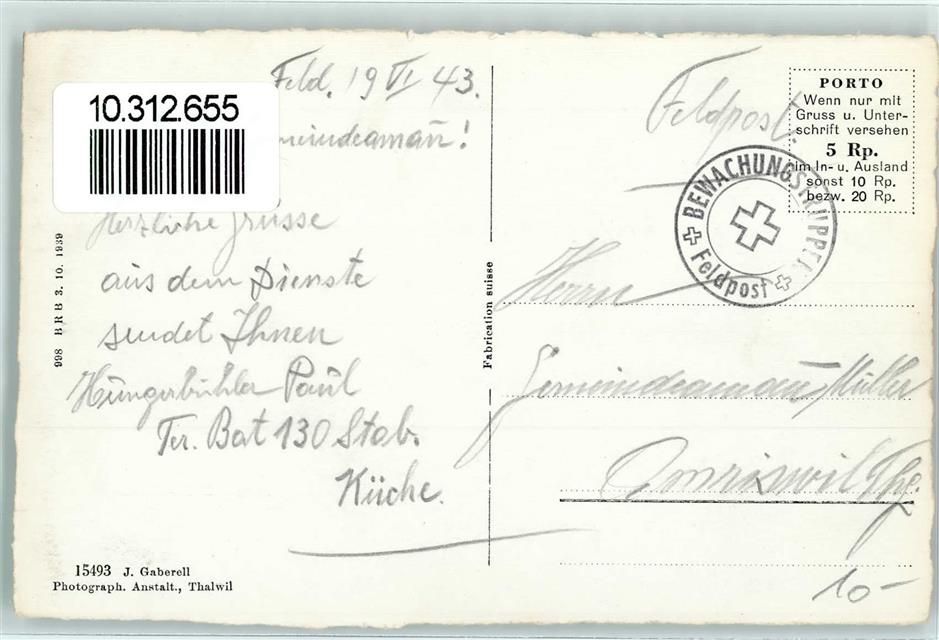 Feld, 19 VI 43.
10.312.655
meindeamañ!
Herzliche Grüsse
aus dem Dienste
sendet Ihnen
Hungerbühler Paul
Ter. Bat 130 Stab.
Küche.
998 B R B 3. 10. 1939
15493 J. Gaberell
Photograph. Anstalt., Thalwil
Fabrication suisse
Feldpost.
PORTO
Wenn nur mit
Gruss u. Unter-
schrift versehen
5 Rp.
im In- u. Ausland
sonst 10 Rp.
bezw. 20 Rp.
BEWACHUNGSTRUPPEN
Feldpost
Herrn
Gemeindeamañ Müller
Amriswil Thg.
10-